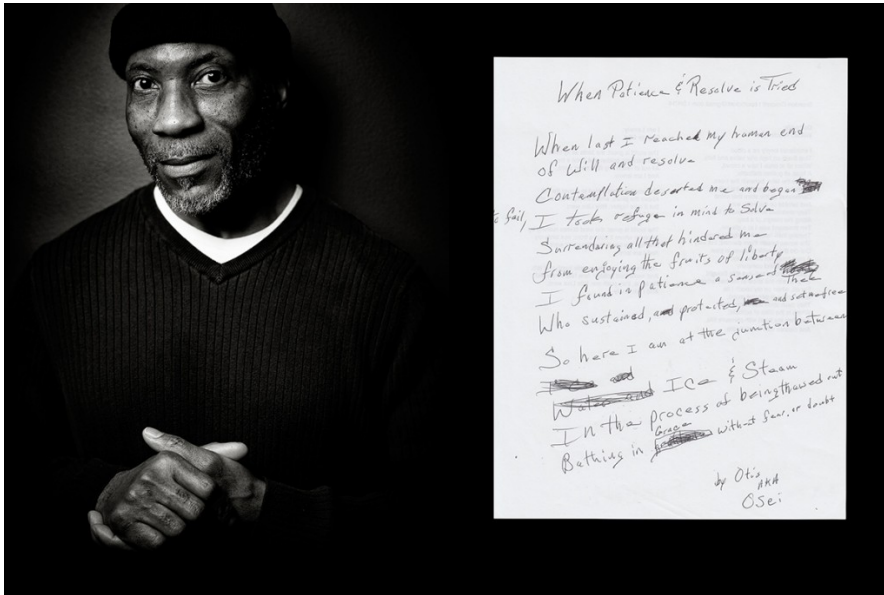 When Patience & Resolve is Tried
When last I reached my human end
of Will and resolve
Contemplation deserted me and began
to fail, I took refuge in mind to Solve
Surrendering all that hindered me
from enjoying the fruits of liberty
I found in patience a sense of Thee
Who sustained, and protected, and set me free
So here I am at the junction between
Ice & Steam
In the process of being thawed out
Bathing in Grace without fear, or doubt
by Otis
AKA
Osei